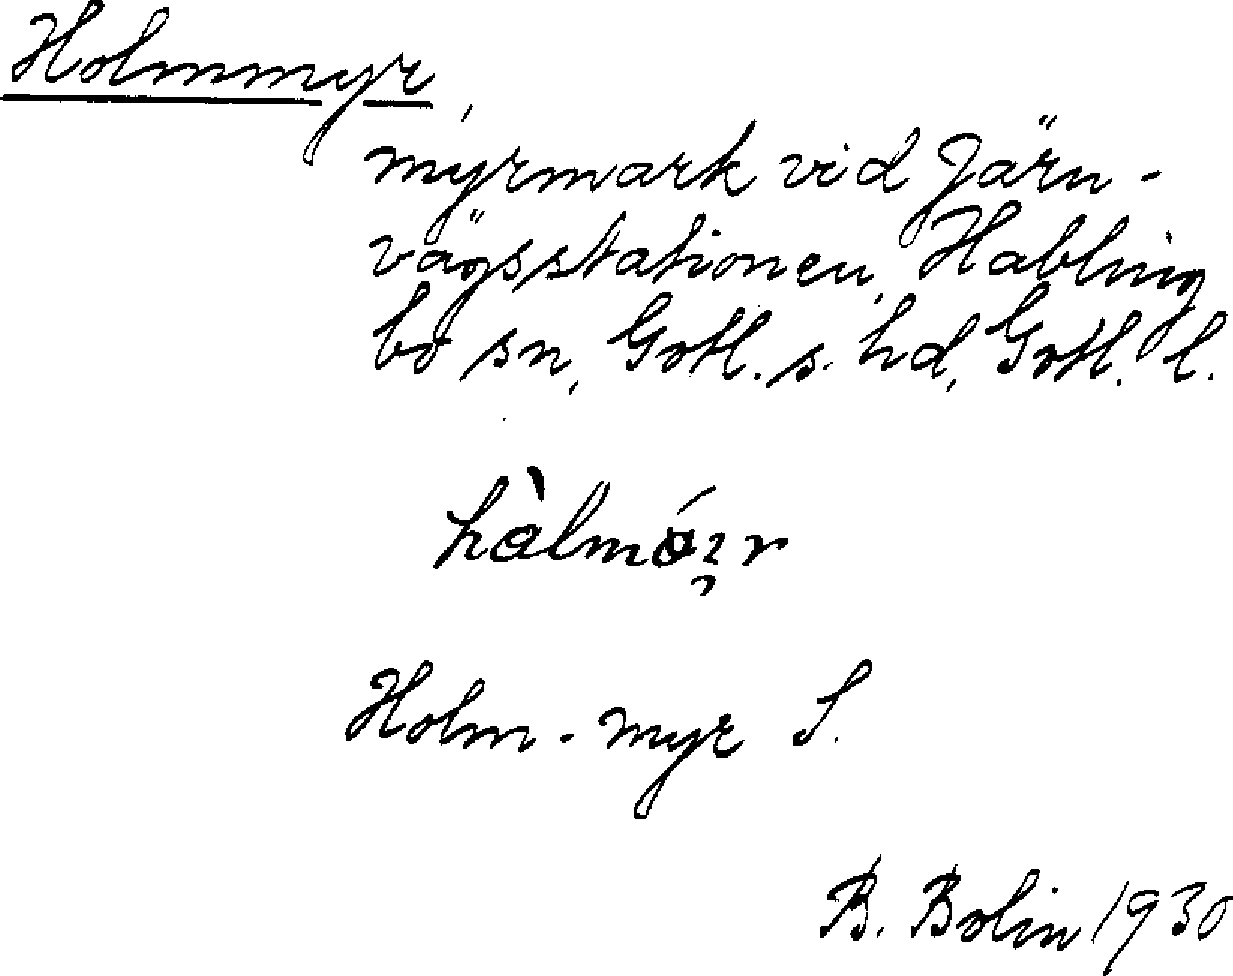 Holmmyr,
myrmark vid Järn-
vägsstationen, Habling
bo sn, Gotl. s. hd, Gotl. l.
Holm - myr S.
B. Bolin 1930